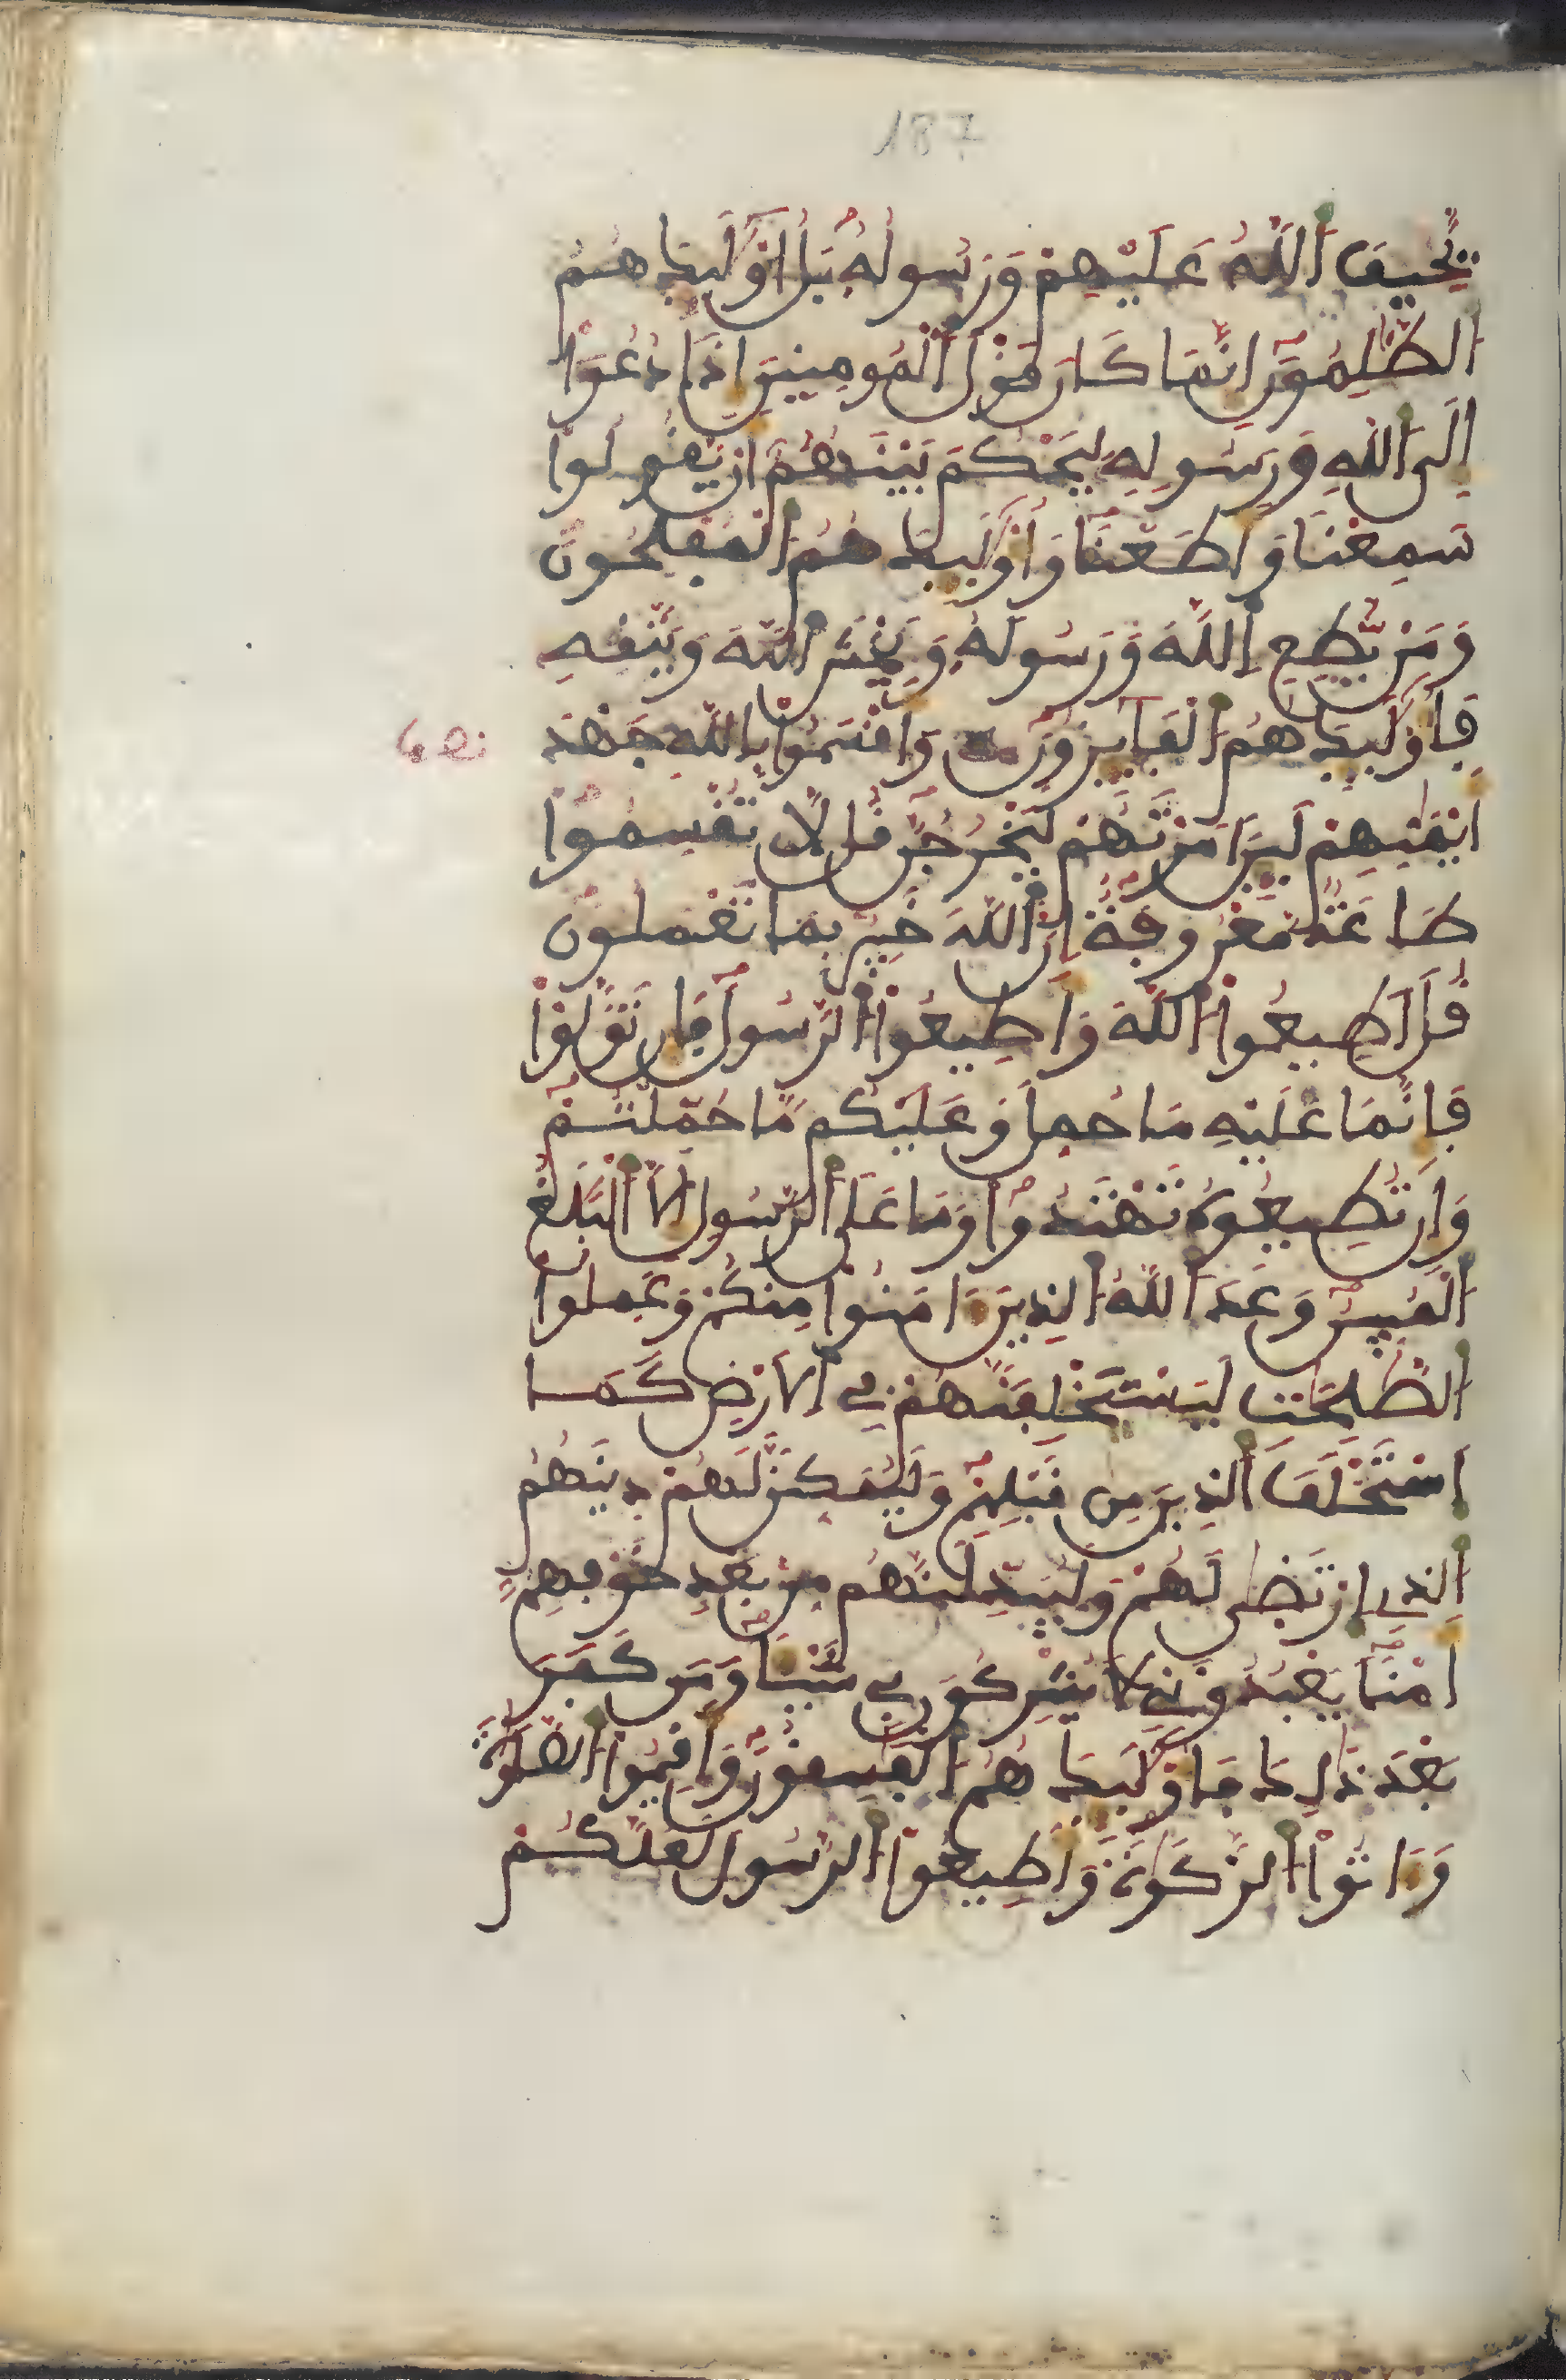 187
يَّحِيفَ اَللَّهُ عَلَيْهِمْ وَرَسُولُهُۥ بَلُ اوْلَٰٓئِكَ هُمُ
اُلظَّٰلِمُونَ إِنَّمَا كَانَ قَوْلَ اَلْمُومِنِينَ إِذَا دُعُوٓاْ
إِلَى اَللَّهِ وَرَسُولِهِۦ لِيَحْكُمَ بَيْنَهُمُۥٓ أَنْ يَّقُولُواْ
سَمِعْنَا وَأَطَعْنَا وَأُوْلَٰٓئِكَ هُمُ اُلْمُفْلِحُونَ
وَمَنْ يُّطِعِ اِللَّهَ وَرَسُولَهُۥ وَيَخْشَ اَللَّهَ وَيَتَّقِهِ
فَأُوْلَٰٓئِكَ هُمُ اُلْفَآئِزُونَ وَأَقْسَمُواْ بِاللَّهِ جَهْدَ
نصف
أَيْمَٰنِهِمْ لَئِنَ اَمَرْتَهُمْ لَيَخْرُجُنَّ قُل لَّا تُقْسِمُواْ
طَاعَةٌ مَّعْرُوفَةٌ اِنَّ اَللَّهَ خَبِيرٌۢ بِمَا تَعْمَلُونَ
قُلَ اَطِيعُواْ اُللَّهَ وَأَطِيعُواْ اُلرَّسُولَ فَإِن تَوَلَّوْاْ
فَإِنَّمَا عَلَيْهِ مَا حُمِّلَ وَعَلَيْكُم مَّا حُمِّلْتُمْ
وَإِن تُطِيعُوهُ تَهْتَدُواْ وَمَا عَلَى اَلرَّسُولِ إِلَّا اَلْبَلَٰغُ
اُلْمُبِينُ وَعَدَ اَللَّهُ اُلذِينَ ءَامَنُواْ مِنكُمْ وَعَمِلُواْ
اُلصَّٰلِحَٰتِ لَيَسْتَخْلِفَنَّهُمْ فِے اِلَارْضِ كَمَا
اَسْتَخْلَفَ اَلذِينَ مِن قَبْلِهِمْ وَلَيُمَكِّنَنَّ لَهُمْ دِينَهُمُ
اُلذِے اِرْتَضَىٰ لَهُمْ وَلَيُبَدِّلَنَّهُم مِّنۢ بَعْدِ خَوْفِهِمُۥٓ
أَمْناً يَعْبُدُونَنِے لَا يُشْرِكُونَ بِے شَيْئاً وَمَن كَفَرَ
بَعْدَ ذَٰلِكَ فَأُوْلَٰٓئِكَ هُمُ اُلْفَٰسِقُونَ وَأَقِيمُواْ اُلصَّلَوٰةَ
وَءَاتُواْ اُلزَّكَوٰةَ وَأَطِيعُواْ اُلرَّسُولَ لَعَلَّكُمْ